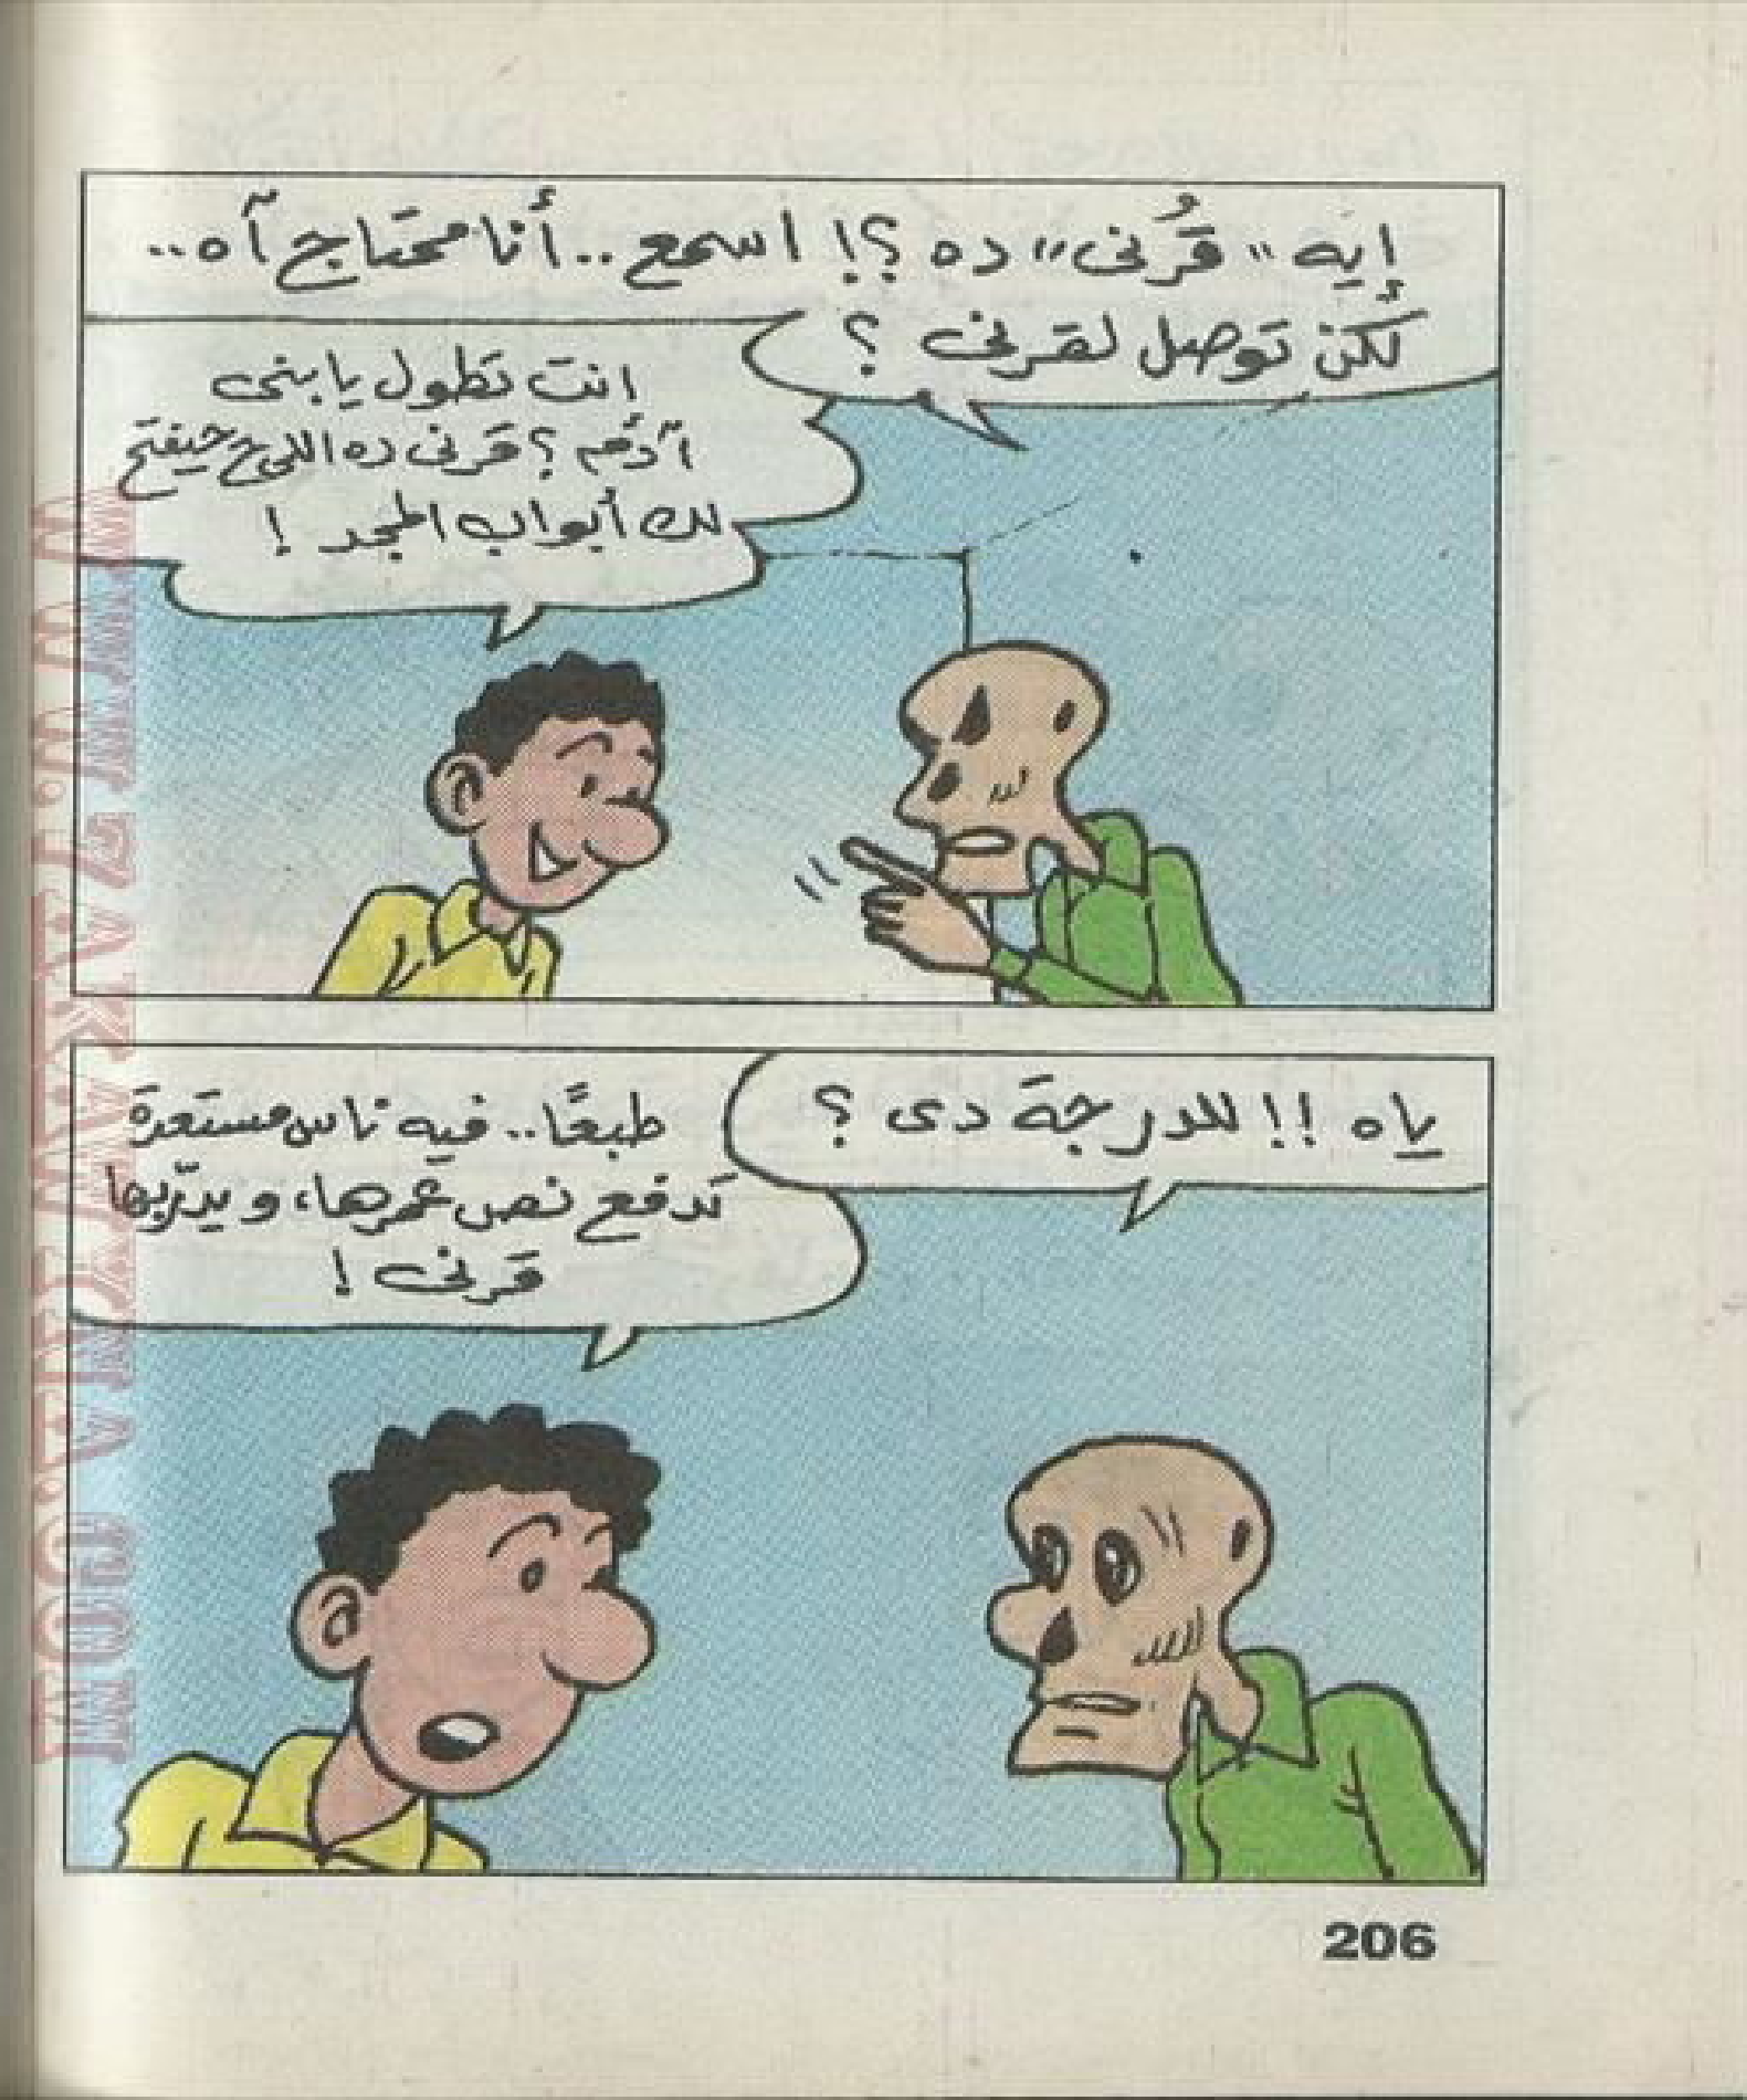 إيه "قُرنى" ده ؟! اسمع.. أنا محتاج آه..
لكن توصل لقرنى ؟
انت تطول يا بنى
آدم ؟ قرنى ده اللى حيفتح
لك أبواب المجد !
ياه !! للدرجة دى ؟
طبعًا.. فيه ناس مستعدة
تدفع نص عمرها، ويدرّبها
قرنى !
206